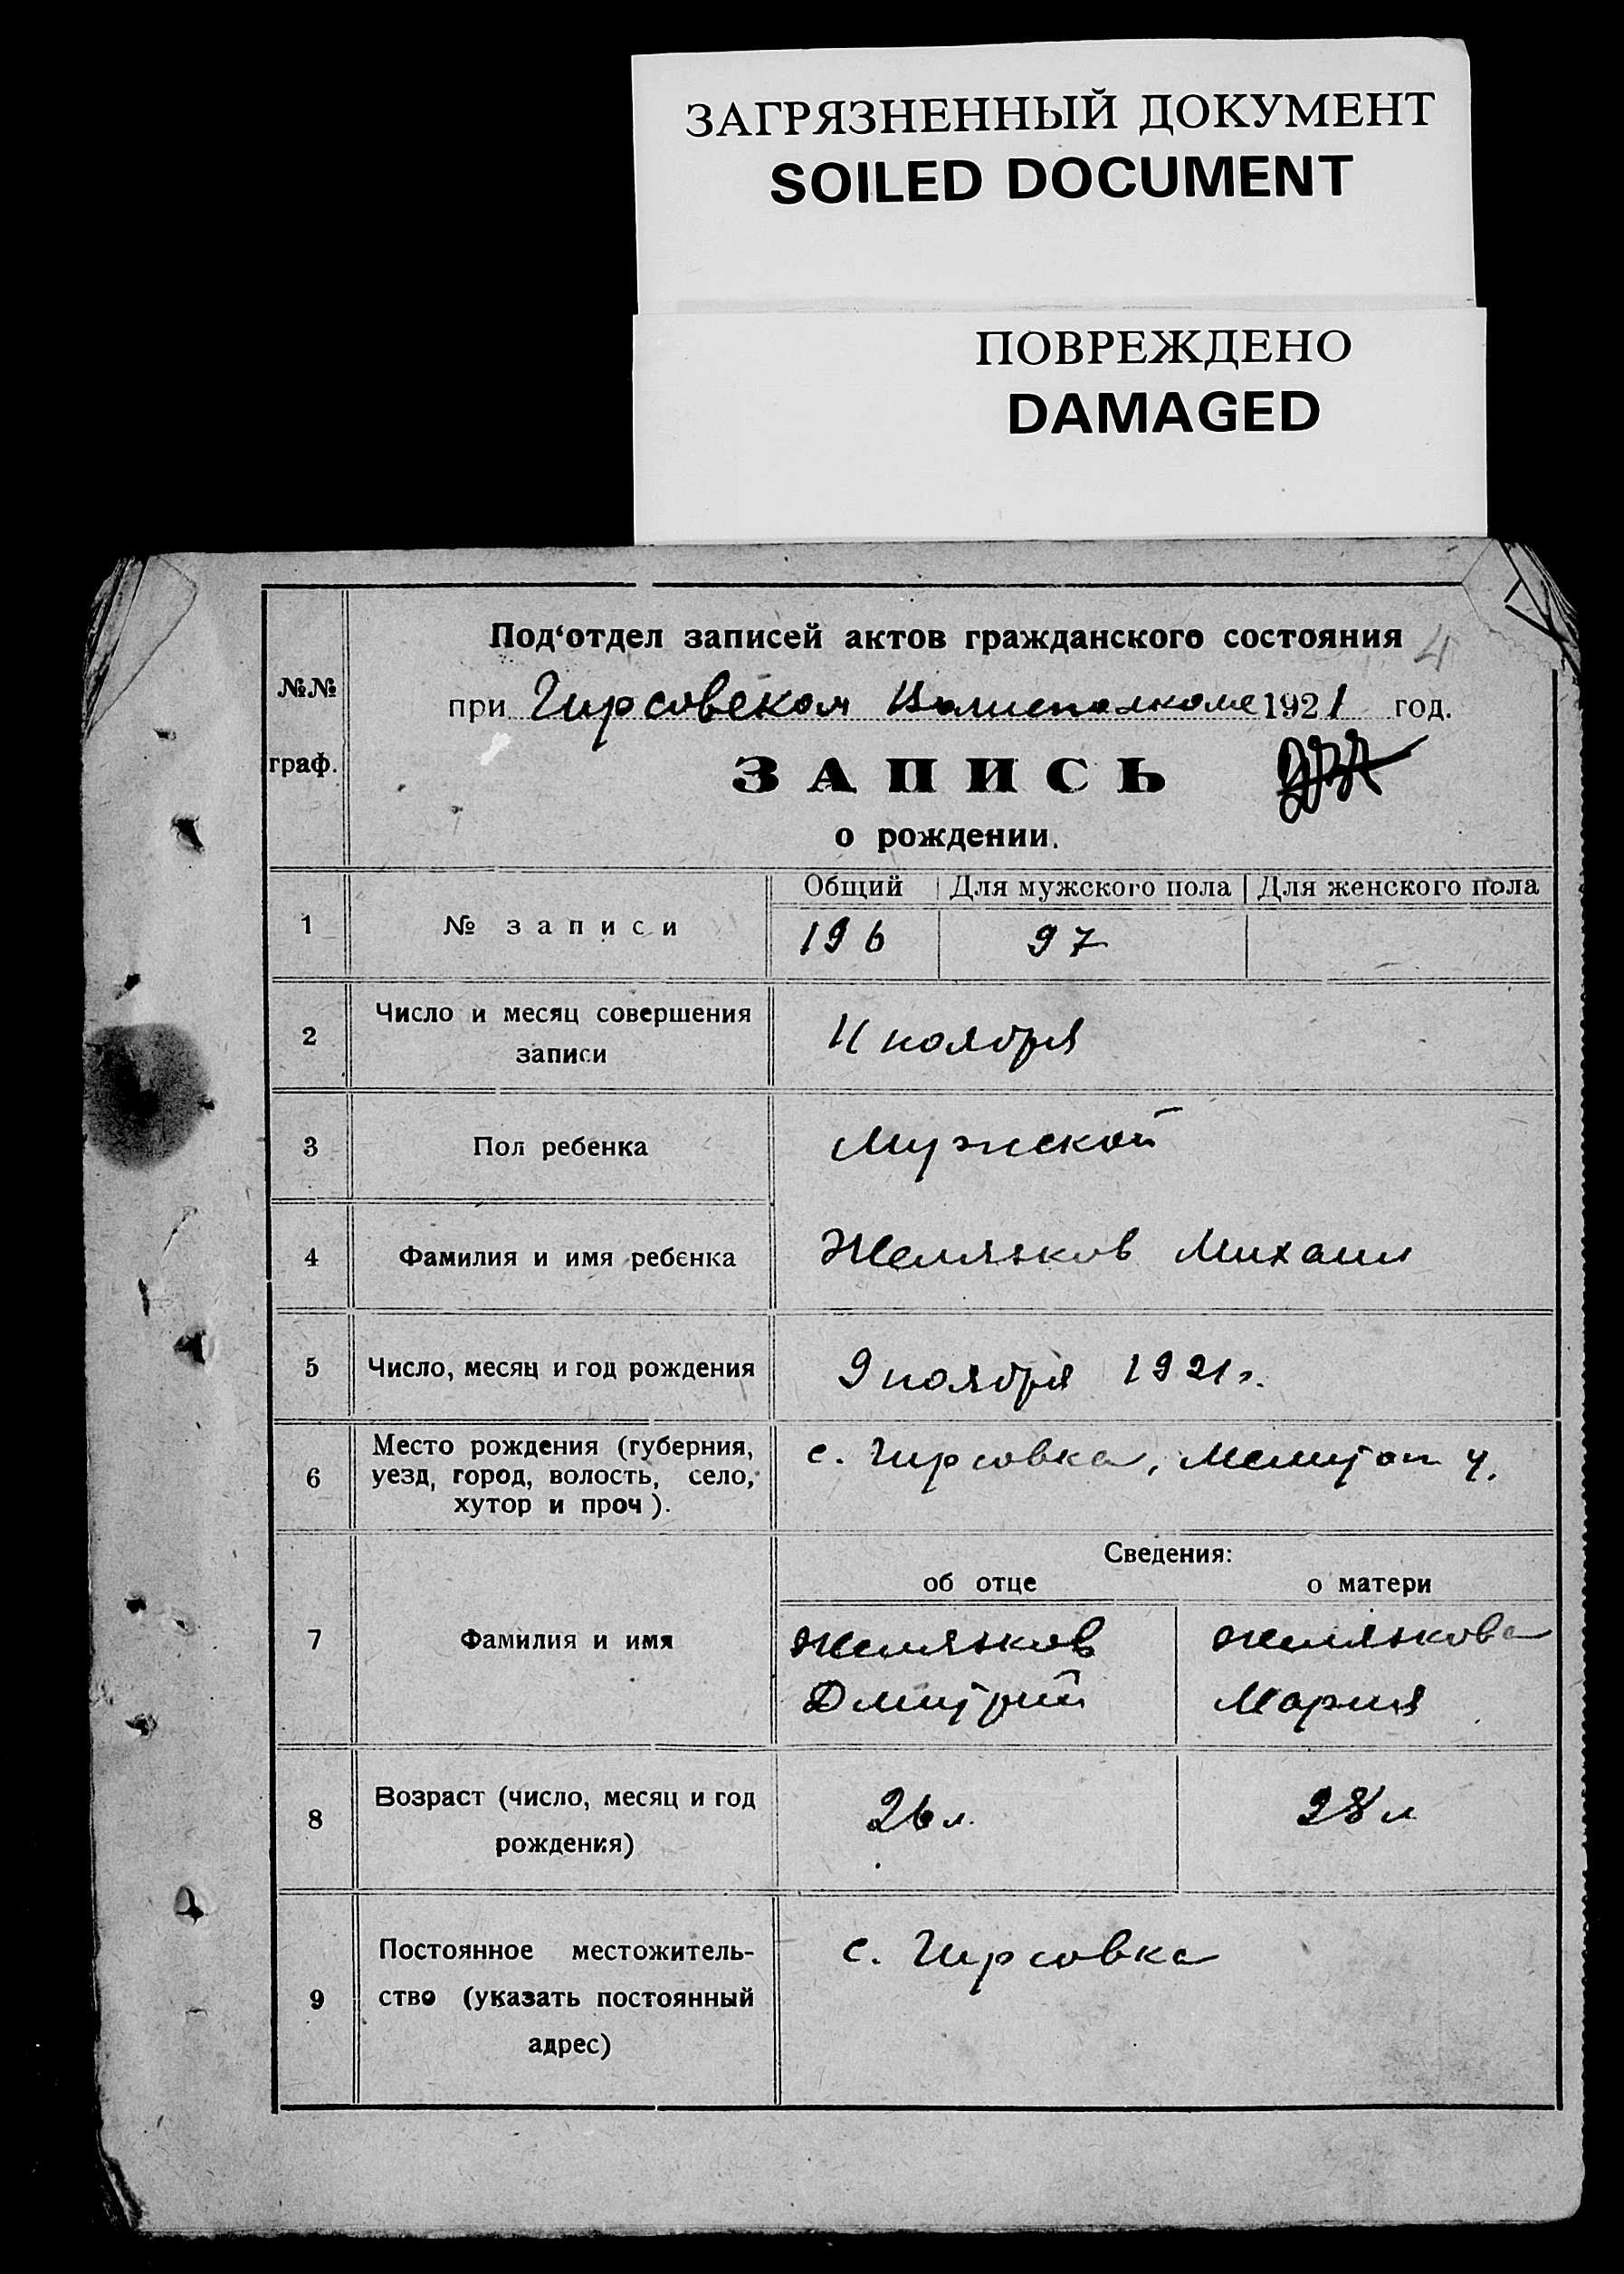 ЗАГРЯЗНЕННЫЙ ДОКУМЕНТ
SOILED DOCUMENT
ПОВРЕЖДЕНО
DAMAGED
Под‘отдел записей актов гражданского состояния
4
№№
граф.
при Гирсовском Волисполкоме 1921 год.
ЗАПИСЬ
о рождении.
Общий Для мужского пола Для женского пола
1 № записи 196 97
2 Число и месяц совершения
записи
11 ноября
3 Пол ребенка Мужской
4 Фамилия и имя ребенка Желязков Михаил
5 Число, месяц и год рождения 9 ноября 1921 г.
6 Место рождения (губерния,
уезд, город, волость, село,
хутор и проч).
с. Гирсовка, Мелитоп у.
Сведения:
об отце о матери
7 Фамилия и имя
Желязков Желязкова
Дмитрий Мария
8 Возраст (число, месяц и год
рождения)
26 л. 28 л
9 Постоянное местожитель-
ство (указать постоянный
адрес)
с. Гирсовка